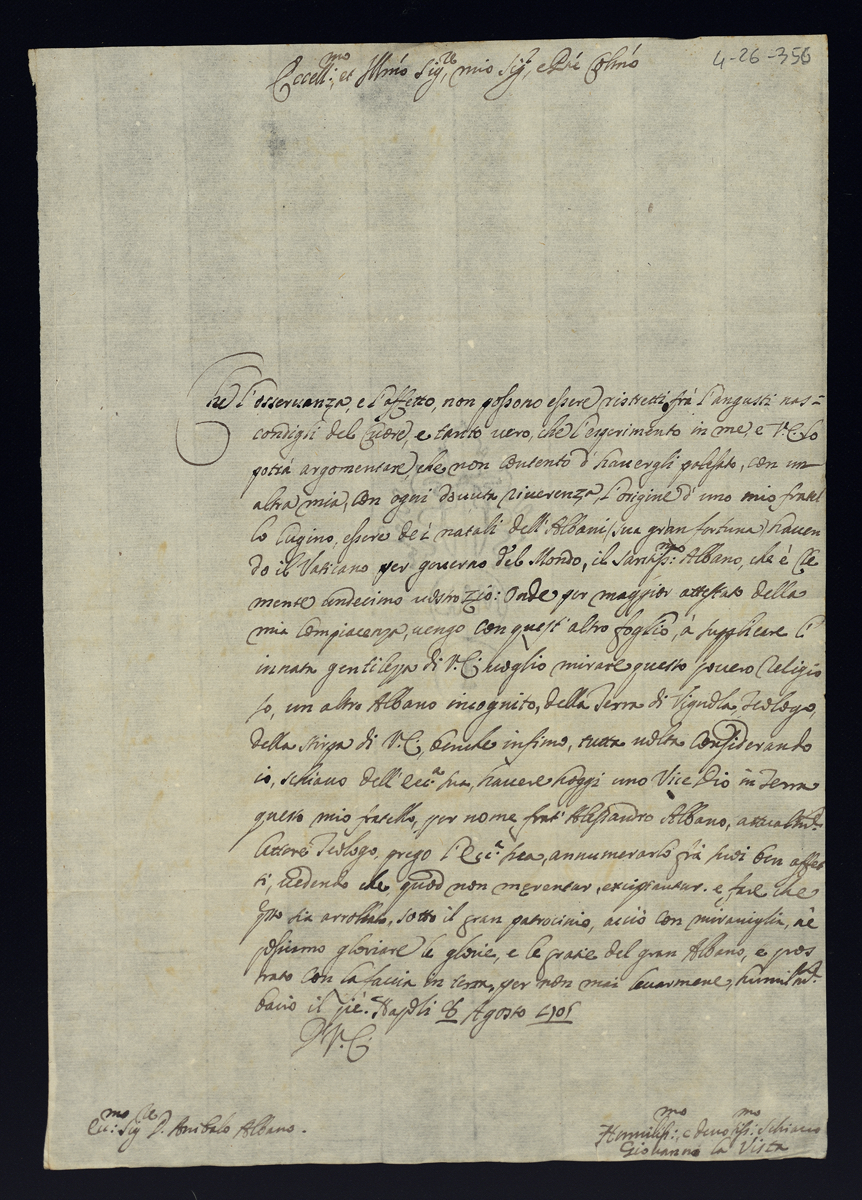 4-26-356
Eccell:mo et Illmo Sigre, mio Sigr, e Pne Colmo
Che l'osservanza, e l'affetto, non possono essere ristretti frà l'angusti nas=
condigli del Cuore, e tanto vero, che l'esperimento in me, e V.E. lo
potrà argomentare, che non contento d'havergli palesato, con un
altra mia, con ogni dovuta riverenza, l'origine d'uno mio fratel
lo Cugino, essere de i natali dell'Albani (sua gran fortuna) haven
do il Vaticano per governo del Mondo, il Santiss:mo Albano, che è Cle
mente undecimo vostro Zio: Onde per maggior attestato della
mia Compiacenza, vengo con quest'altro foglio, à supplicare l'
innata gentilezza di V.E: voglio mirare questo povero Religio
so, un altro Albano incognito, della Terra di Vignola, Teologo,
della stirpa di V.E, benche infimo, tutta volta Considerando
io, schiavo dell'Ecc.a sua, havere hoggi uno Vice Dio in Terra
questo mio fratello, per nome frat'Alessandro Albano, attualmte
lettere Teologo, prego l'Ecc.a sua, annumerarlo frà suoi ben affet
ti, credendo che, quod non merentur, excipiantur. e fare che
qsto sia arrollato, sotto il gran patrocinio, acciò con miraviglia, ne
possiamo gloriare le glorie, e le gratie del gran Albano, e pros
trato con la faccia in terra, per non mai levarmene, humilmte
bacio il piè. Napoli 8 Agosto 1701
D'V.E:
Ecc:mo Sigre D. Anibalo Albano.
Humiliss:mo, e devotiss:mo schiavo
Giovanno la Vista